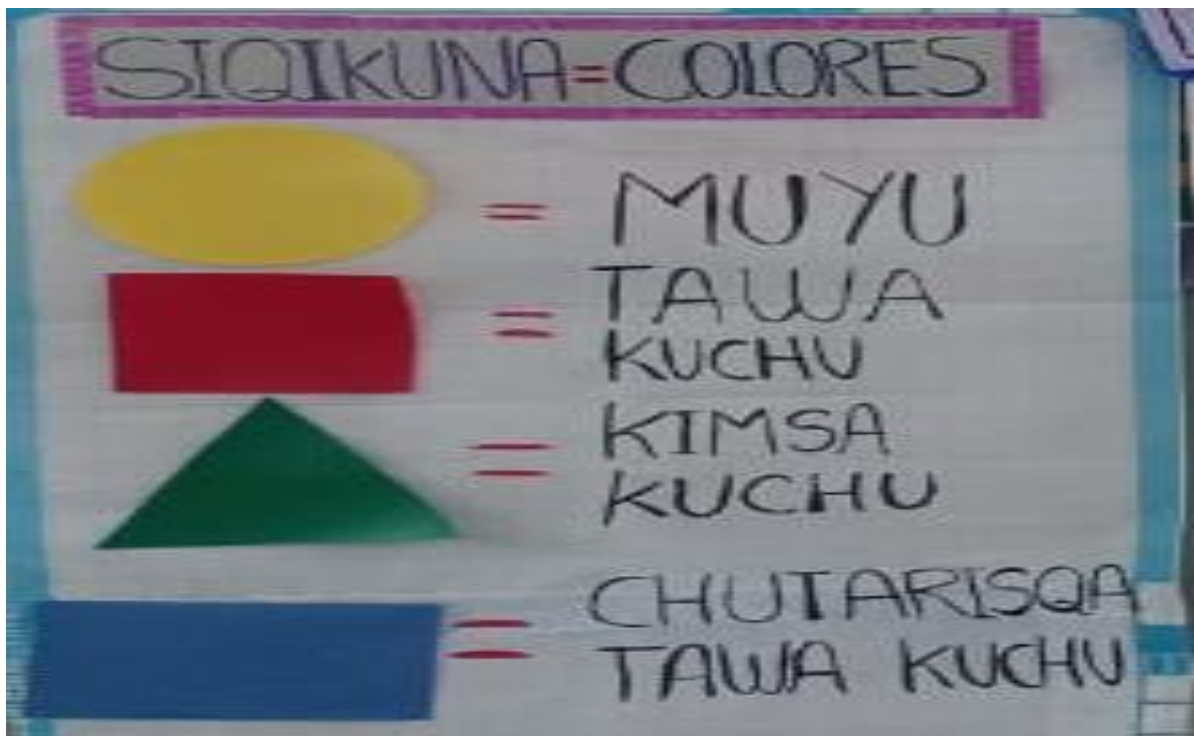 SIQIKUNA=COLORES
= MUYU
= TAWA
KUCHU
= KIMSA
KUCHU
= CHUTARISQA
TAWA KUCHU